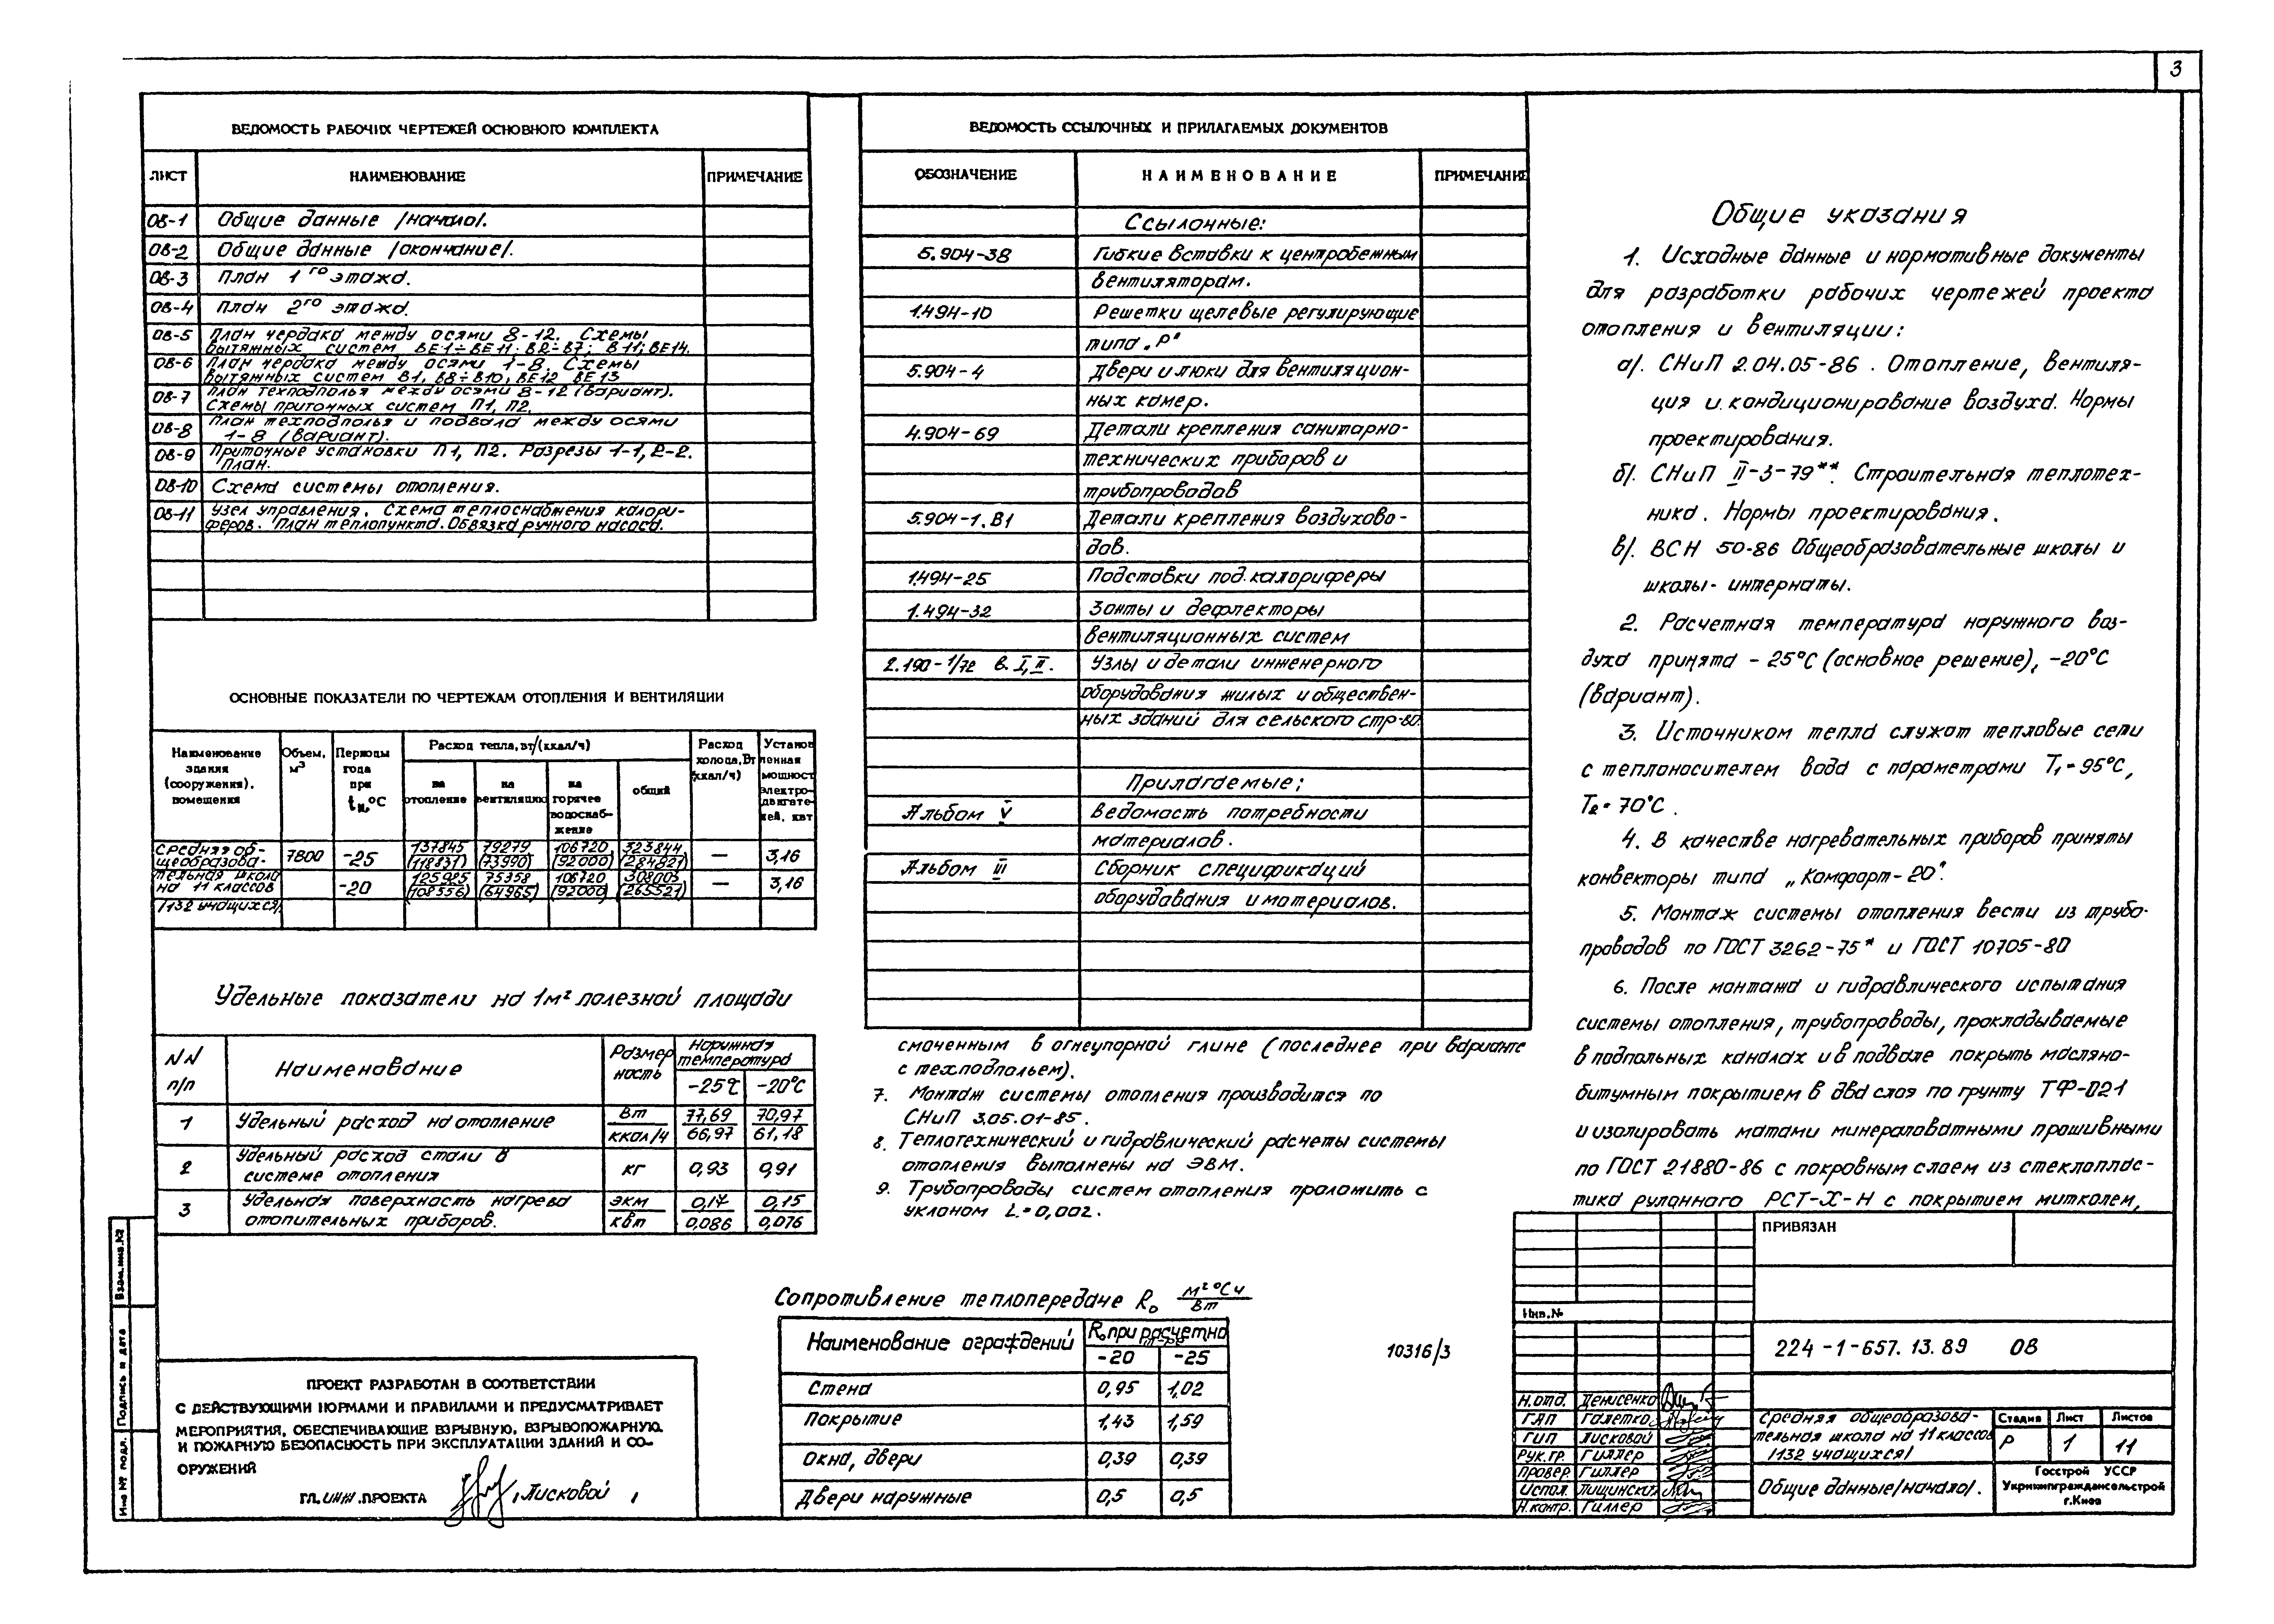 3
ВЕДОМОСТЬ РАБОЧИХ ЧЕРТЕЖЕЙ ОСНОВНОГО КОМПЛЕКТА
ЛИСТ НАИМЕНОВАНИЕ ПРИМЕЧАНИЕ
ОВ-1 Общие данные /начало/.
ОВ-2 Общие данные /окончание/.
ОВ-3 План 1го этажа.
ОВ-4 План 2го этажа.
ОВ-5 План чердака между осями 8-12. Схемы
вытяжных систем ВЕ1÷ВЕ11; В2÷В7; В11; ВЕ14.
ОВ-6 План чердака между осями 1-8. Схемы
вытяжных систем В1, В8÷В10, ВЕ12 ВЕ13
ОВ-7 План техподполья между осями 8-12 (вариант).
Схемы приточных систем П1, П2.
ОВ-8 План техподполья и подвала между осями
1-8 (вариант).
ОВ-9 Приточные установки П1, П2. Разрезы 1-1, 2-2.
План.
ОВ-10 Схема системы отопления.
ОВ-11 Узел управления. Схема теплоснабжения калори-
феров. План теплопункта. Обвязка ручного насоса.
ОСНОВНЫЕ ПОКАЗАТЕЛИ ПО ЧЕРТЕЖАМ ОТОПЛЕНИЯ И ВЕНТИЛЯЦИИ
Наименование здания (сооружения), помещения
Объем, м³
Периоды года при tн, °С
Расход тепла, вт/(ккал/ч)
на отопление
на вентиляцию
на горячее водоснаб-жение
общий
Расход холода, Вт (ккал/ч)
Установ ленная мощност электро-двигате-лей, квт
Средняя об- 7800 -25 137845 79279 106720 323844 — 3,16
щеобразова- (118831) (73990) (92000) (284821)
тельная школа -20 125925 75358 106720 308003 — 3,16
на 11 классов (108556) (64965) (92000) (265521)
/132 учащихся/
Удельные показатели на 1м² полезной площади
NN п/п Наименование Размер ность Наружная температура
-25°С -20°С
1 Удельный расход на отопление Вт 77,69 70,97
ккал/ч 66,97 61,18
2 Удельный расход стали в
системе отопления кг 0,93 0,91
3 Удельная поверхность нагрева экм 0,17 0,15
отопительных приборов. квт 0,086 0,076
ПРОЕКТ РАЗРАБОТАН В СООТВЕТСТВИИ
С ДЕЙСТВУЮЩИМИ НОРМАМИ И ПРАВИЛАМИ И ПРЕДУСМАТРИВАЕТ
МЕРОПРИЯТИЯ, ОБЕСПЕЧИВАЮЩИЕ ВЗРЫВНУЮ, ВЗРЫВОПОЖАРНУЮ
И ПОЖАРНУЮ БЕЗОПАСНОСТЬ ПРИ ЭКСПЛУАТАЦИИ ЗДАНИЙ И СО-
ОРУЖЕНИЙ
ГЛ. ИНЖ. ПРОЕКТА /Лисковой/
Взам.инв.№
Подпись и дата
Инв № подл.
ВЕДОМОСТЬ ССЫЛОЧНЫХ И ПРИЛАГАЕМЫХ ДОКУМЕНТОВ
ОБОЗНАЧЕНИЕ НАИМЕНОВАНИЕ ПРИМЕЧАНИЕ
Ссылочные:
5.904-38 Гибкие вставки к центробежным
вентиляторам.
1.494-10 Решетки щелевые регулирующие
типа „Р"
5.904-4 Двери и люки для вентиляцион-
ных камер.
4.904-69 Детали крепления санитарно-
технических приборов и
трубопроводов
5.904-1. В1 Детали крепления воздухово-
дов.
1.494-25 Подставки под калориферы
1.494-32 Зонты и дефлекторы
вентиляционных систем
2.190-1/72 в. I, II. Узлы и детали инженерного
оборудования жилых и обществен-
ных зданий для сельского стр-ва.
Прилагаемые:
Альбом V Ведомость потребности
материалов.
Альбом III Сборник спецификаций
оборудования и материалов.
смоченным в огнеупорной глине (последнее при варианте
с техподпольем).
7. Монтаж системы отопления производится по
СНиП 3.05.01-85.
8. Теплотехнический и гидравлический расчеты системы
отопления выполнены на ЭВМ.
9. Трубопроводы систем отопления проложить с
уклоном L=0,002.
Сопротивление теплопередаче Ro м² °С ч
Вт
Наименование ограждений Ro при расчетно
-20 -25
Стена 0,95 1,02
Покрытие 1,43 1,59
Окна, двери 0,39 0,39
Двери наружные 0,5 0,5
10316/3
Общие указания
1. Исходные данные и нормативные документы
для разработки рабочих чертежей проекта
отопления и вентиляции:
а/. СНиП 2.04.05-86. Отопление, вентиля-
ция и кондиционирование воздуха. Нормы
проектирования.
б/. СНиП II-3-79**. Строительная теплотех-
ника. Нормы проектирования.
в/. ВСН 50-86 Общеобразовательные школы и
школы-интернаты.
2. Расчетная температура наружного воз-
духа принята -25°С (основное решение), -20°С
(вариант).
3. Источником тепла служат тепловые сети
с теплоносителем вода с параметрами Т1=95°С,
Т2=70°С.
4. В качестве нагревательных приборов приняты
конвекторы типа „Комфорт-20".
5. Монтаж системы отопления вести из трубо-
проводов по ГОСТ 3262-75* и ГОСТ 10705-80
6. После монтажа и гидравлического испытания
системы отопления, трубопроводы, прокладываемые
в подпольных каналах и в подвале покрыть масляно-
битумным покрытием в два слоя по грунту ТФ-021
и изолировать матами минераловатными прошивными
по ГОСТ 21880-86 с покровным слоем из стеклоплас-
тика рулонного РСТ-Х-Н с покрытием миткалем,
ПРИВЯЗАН
Инв.№
224-1-657.13.89 ОВ
Н.отд. Денисенко
ГАП Галетко
ГИП Лисковой
Рук.гр. Гиллер
Провер Гиллер
Испол.
Н.контр. Гиллер
Средняя общеобразова-
тельная школа на 11 классов
/132 учащихся/
Стадия Лист Листов
Р 1 11
Общие данные/начало/.
Госстрой УССР
Укрниипграждансельстрой
г.Киев